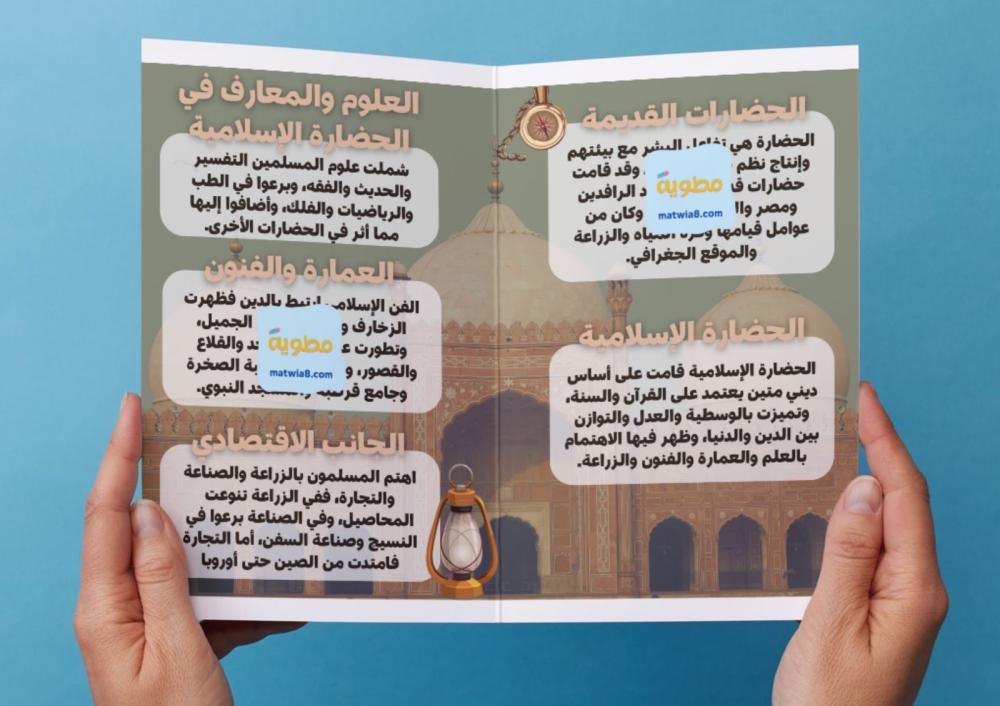 الحضارات القديمة
الحضارة هي تفاعل البشر مع بيئتهم
وإنتاج نظم وقد قامت
حضارات الرافدين
ومصر وكان من
عوامل قيامها وفرة المياه والزراعة
والموقع الجغرافي.
مطوية
matwia8.com
الحضارة الإسلامية
الحضارة الإسلامية قامت على أساس
ديني متين يعتمد على القرآن والسنة،
وتميزت بالوسطية والعدل والتوازن
بين الدين والدنيا، وظهر فيها الاهتمام
بالعلم والعمارة والفنون والزراعة.
العلوم والمعارف في
الحضارة الإسلامية
شملت علوم المسلمين التفسير
والحديث والفقه، وبرعوا في الطب
والرياضيات والفلك، وأضافوا إليها
مما أثر في الحضارات الأخرى.
العمارة والفنون
الفن الإسلامي ارتبط بالدين فظهرت
الزخارف الجميل،
وتطورت والقلاع
والقصور، الصخرة
وجامع قرطبة والمسجد النبوي.
مطوية
matwia8.com
الجانب الاقتصادي
اهتم المسلمون بالزراعة والصناعة
والتجارة، ففي الزراعة تنوعت
المحاصيل، وفي الصناعة برعوا في
النسيج وصناعة السفن، أما التجارة
فامتدت من الصين حتى أوروبا